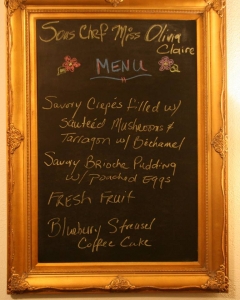 Sous Chef Miss Olivia
Claire
MENU
Savory Crepés filled w/
Sauteéd Mushrooms &
Tarragon w/ Béchamel
Savory Brioche Pudding
w/ Poached Eggs
FRESH FRUIT
Blueberry Streusel
Coffee Cake